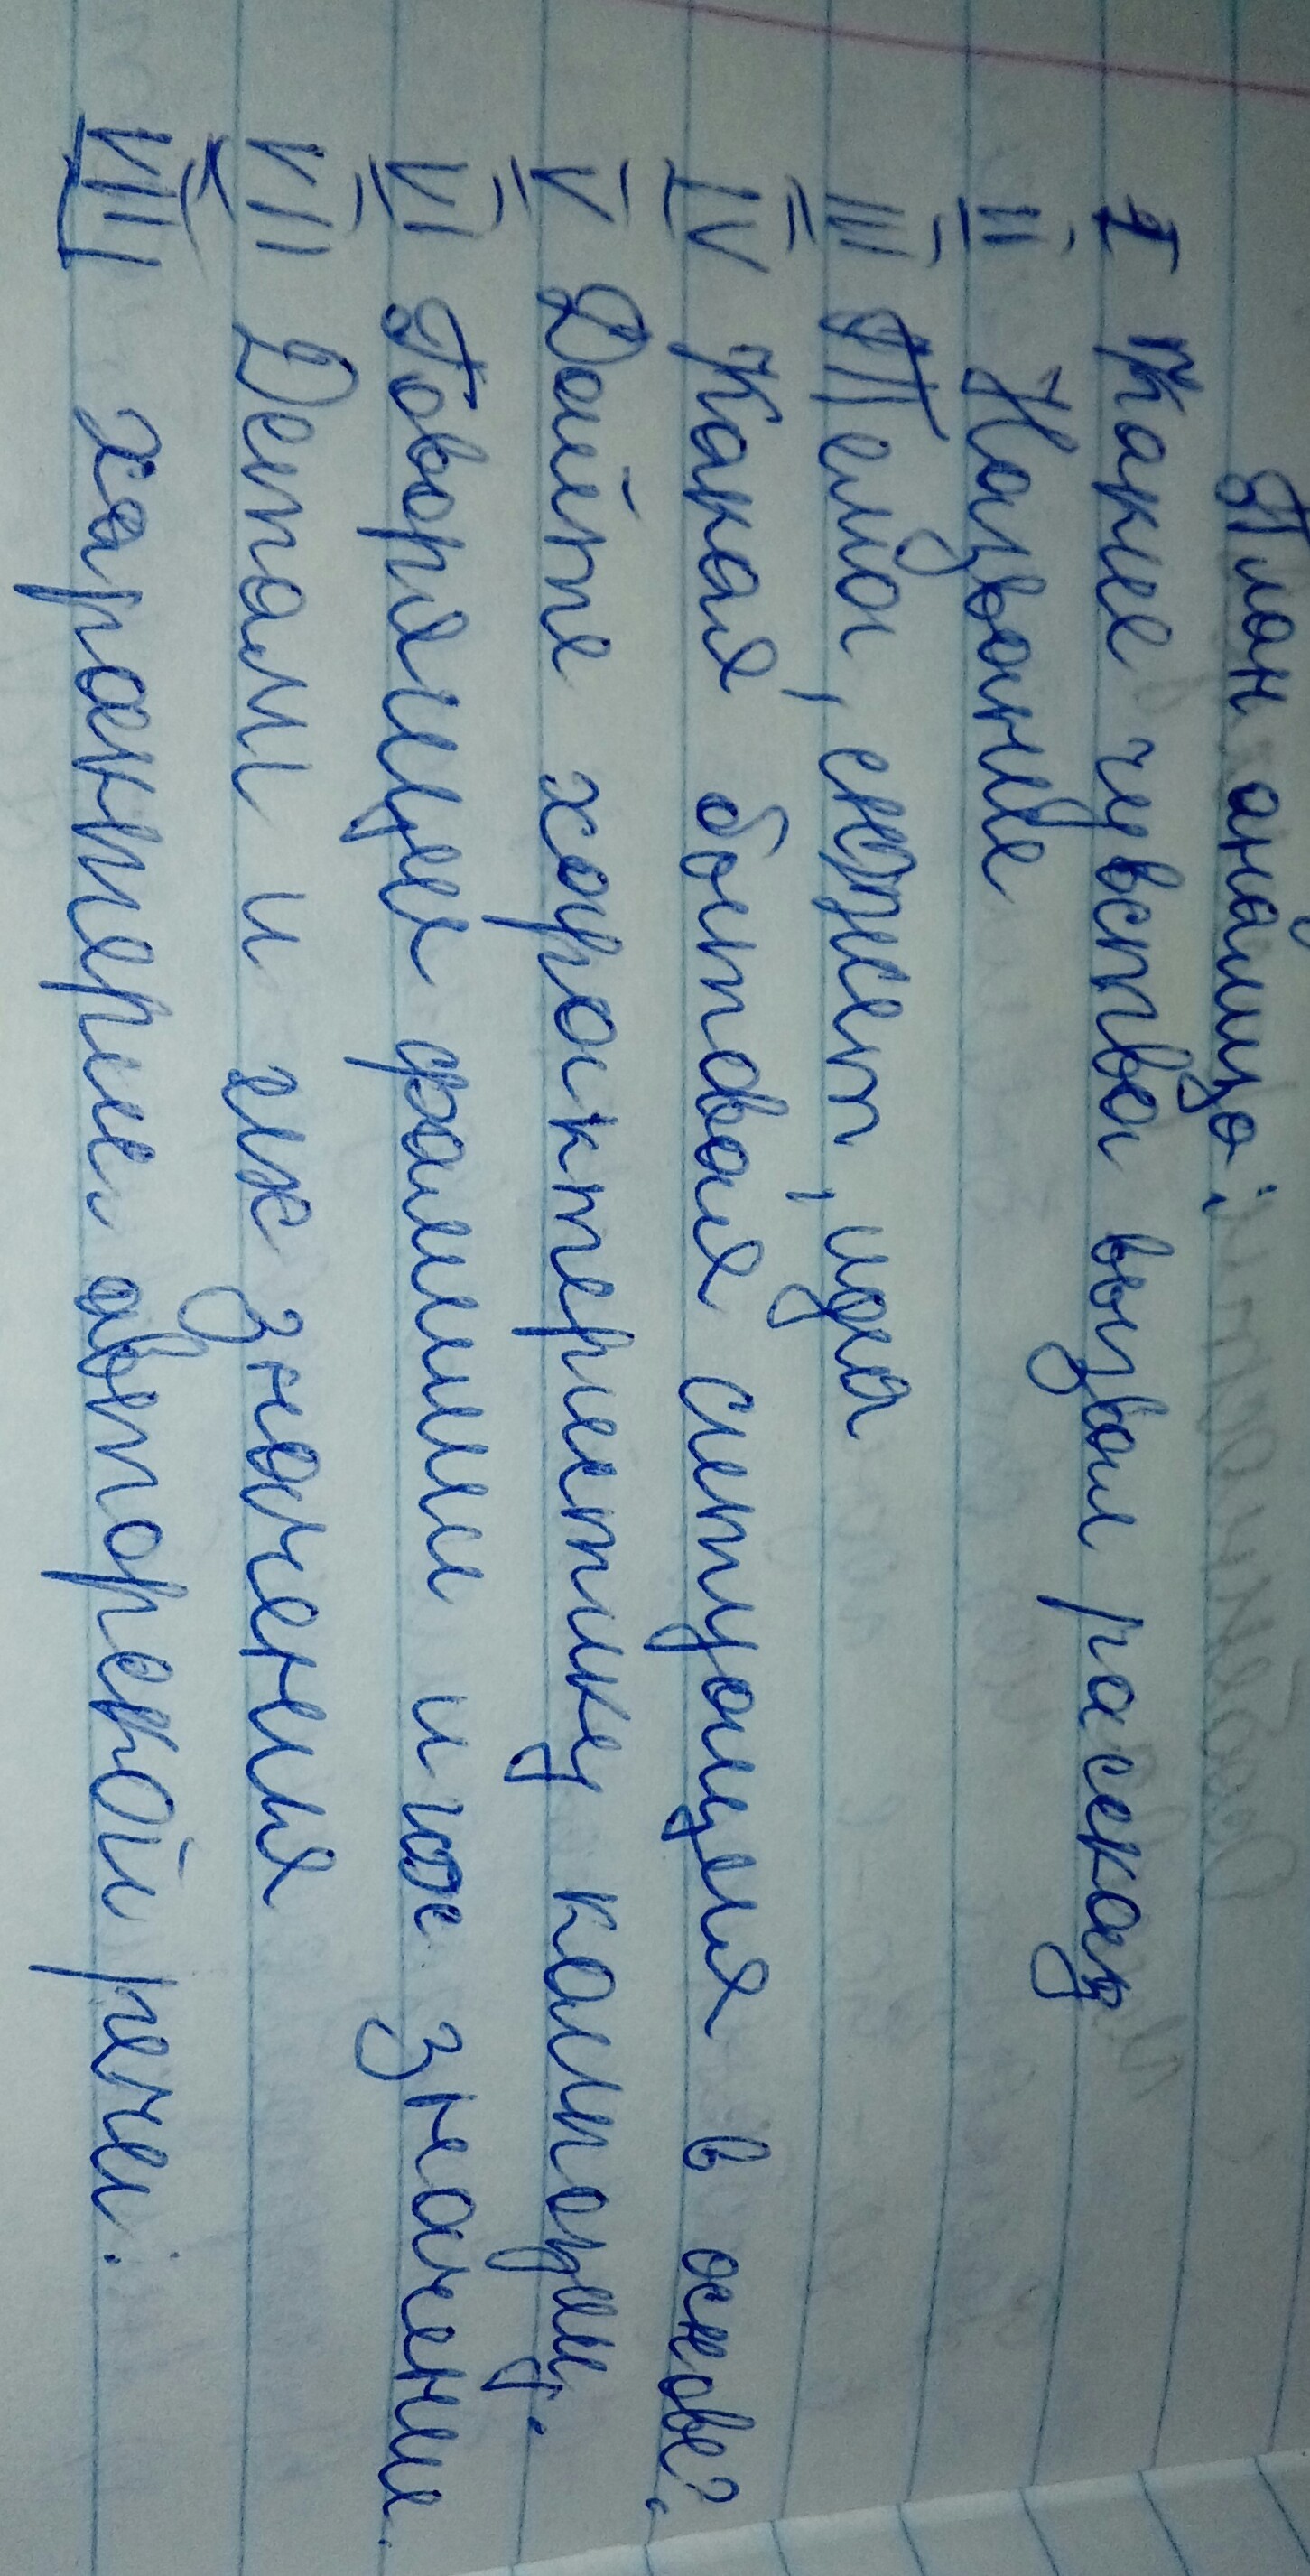 План анализа:
I Какие чувства вызвал рассказ
II Название
III Тема, сюжет, идея
IV Какая бытовая ситуация в основе?
V Дайте характеристику композиц.
VI Говорящие фамилии и их значении.
VII Детали и их значения
VIII характерие авторской речи.